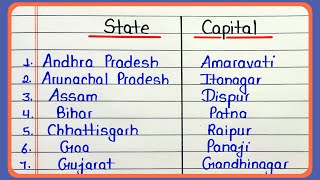 State Capital
1. Andhra Pradesh Amaravati
2. Arunachal Pradesh Itanagar
3. Assam Dispur
4. Bihar Patna
5. Chhattisgarh Raipur
6. Goa Panaji
7. Gujarat Gandhinagar